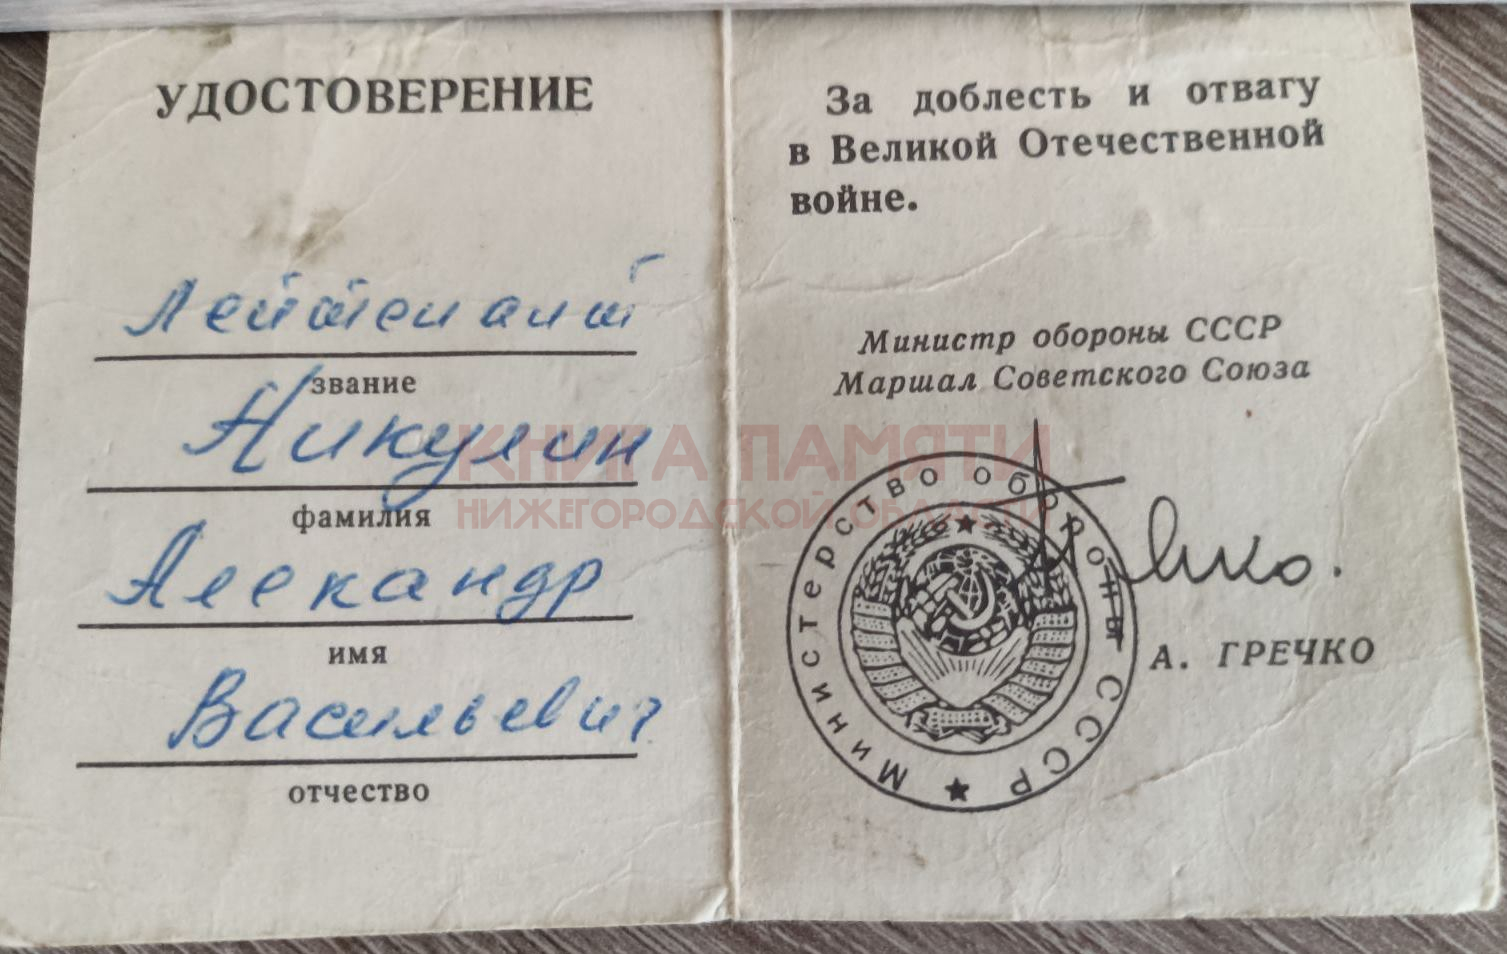 УДОСТОВЕРЕНИЕ
Лейтенант
звание
Никулин
фамилия
Александр
имя
Васильевич
отчество
За доблесть и отвагу
в Великой Отечественной
войне.
Министр обороны СССР
Маршал Советского Союза
Министерство обороны СССР
А. ГРЕЧКО
КНИГА ПАМЯТИ
НИЖЕГОРОДСКОЙ ОБЛАСТИ